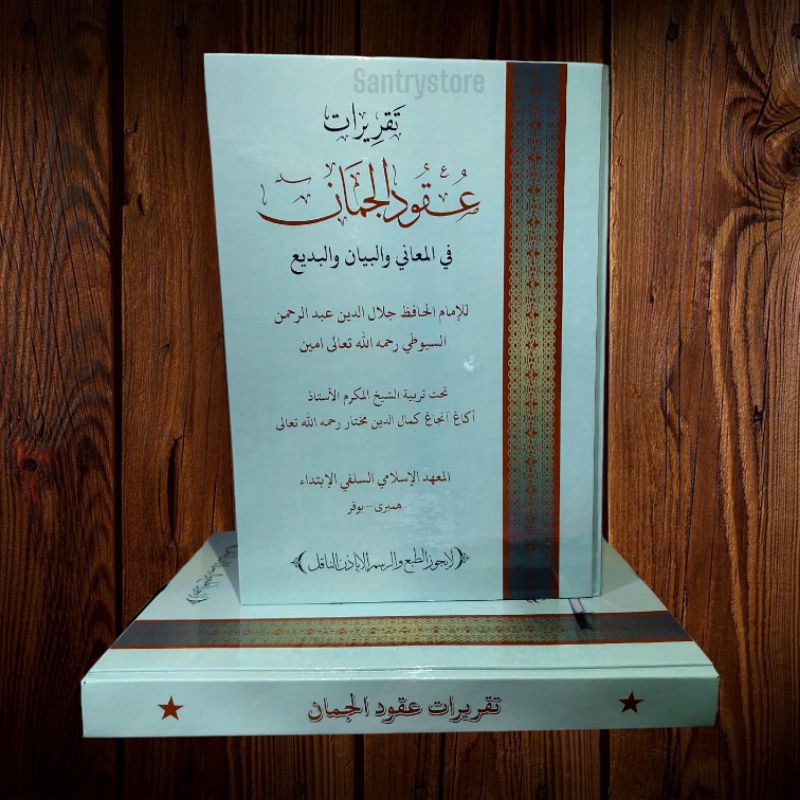 Santrystore
تَقرِيرات
عُقُودُ الجُمَان
في المعاني والبيان والبديع
للإمام الحافظ جلال الدين عبد الرحمن
السيوطي رحمه الله تعالى امين
تحت تربية الشيخ المكرم الأستاذ
أكاڠ أنجاڠ كمال الدين مختار رحمه الله تعالى
المعهد الإسلامي السلفي الإبتداء
همبری - بوقر
لايجوز الطبع والرسم الا باذن الناقل
تقريرات عقود الجمان